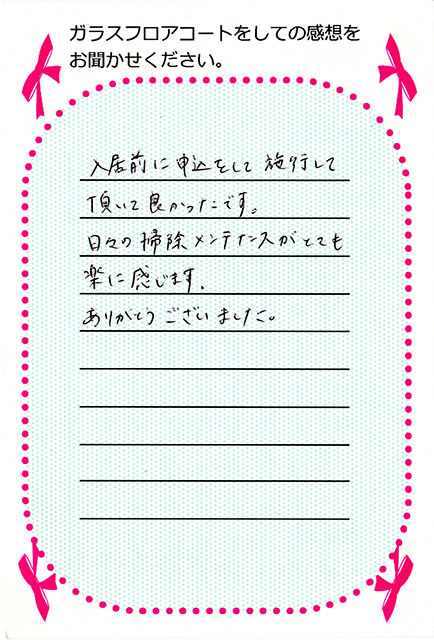 ガラスフロアコートをしての感想を
お聞かせください。
入居前に申込をして施行して
頂いて良かったです。
日々の掃除メンテナンスがとても
楽に感じます。
ありがとうございました。